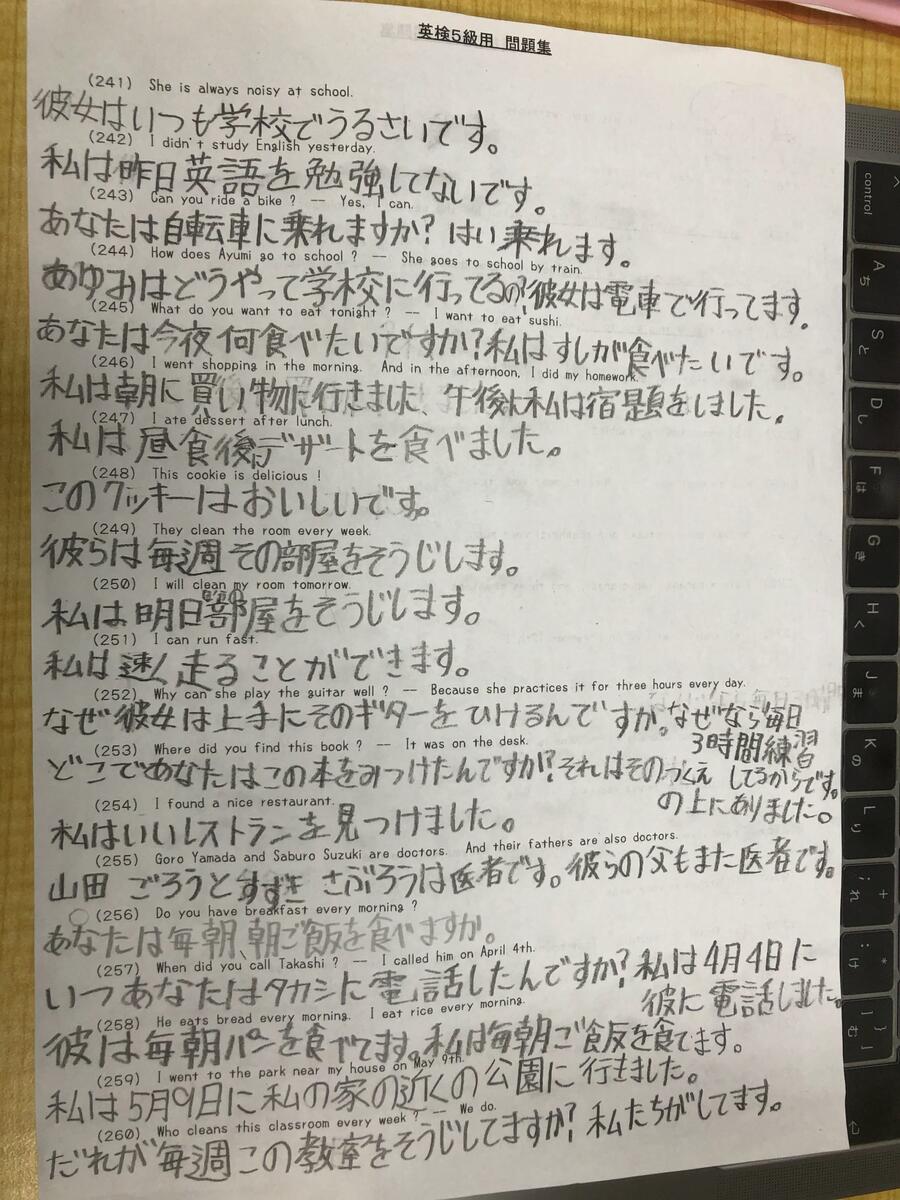 英検5級用 問題集
(241) She is always noisy at school.
彼女はいつも学校でうるさいです。
(242) I didn't study English yesterday.
私は昨日英語を勉強してないです。
(243) Can you ride a bike ? -- Yes, I can.
あなたは自転車に乗れますか? はい乗れます。
(244) How does Ayumi go to school ? -- She goes to school by train.
あゆみはどうやって学校に行ってるの?彼女は電車で行ってます。
(245) What do you want to eat tonight ? -- I want to eat sushi.
あなたは今夜何食べたいですか?私はすしが食べたいです。
(246) I went shopping in the morning. And in the afternoon, I did my homework.
私は朝に買い物に行きました、午後に私は宿題をしました。
(247) I ate dessert after lunch.
私は昼食後にデザートを食べました。
(248) This cookie is delicious !
このクッキーはおいしいです。
(249) They clean the room every week.
彼らは毎週その部屋をそうじします。
(250) I will clean my room tomorrow.
私は明日自分の部屋をそうじします。
(251) I can run fast.
私は速く走ることができます。
(252) Why can she play the guitar well ? -- Because she practices it for three hours every day.
なぜ彼女は上手にそのギターをひけるんですか。なぜなら毎日
3時間練習
してるからです。
(253) Where did you find this book ? -- It was on the desk.
どこであなたはこの本をみつけたんですか?それはそのつくえ
の上にありました。
(254) I found a nice restaurant.
私はいいレストランを見つけました。
(255) Goro Yamada and Saburo Suzuki are doctors. And their fathers are also doctors.
山田 ごろうとすずき さぶろうは医者です。彼らの父もまた医者です。
(256) Do you have breakfast every morning ?
あなたは毎朝、朝ご飯を食べますか。
(257) When did you call Takashi ? -- I called him on April 4th.
いつあなたはタカシに電話したんですか?私は4月4日に
彼に電話しました。
(258) He eats bread every morning. I eat rice every morning.
彼は毎朝パンを食べてます。私は毎朝ご飯を食てます。
(259) I went to the park near my house on May 9th.
私は5月9日に私の家の近くの公園に行きました。
(260) Who cleans this classroom every week ? -- We do.
だれが毎週この教室をそうじしてますか? 私たちがしてます。
control
A
ち
S
と
D
し
F
は
G
き
H
く
J
ま
K
の
L
り